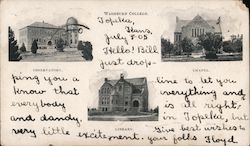 WASHBURN COLLEGE.
Topeka,
Kans,
July 7-05
Hello! Bill
Just drop-
OBSERVATORY.
CHAPEL.
ping you a line to let you
know that everything
everybody and is all right,
and dandy, in Topeka, but
very little excitement. Give best wishes to
your folks Floyd
LIBRARY.